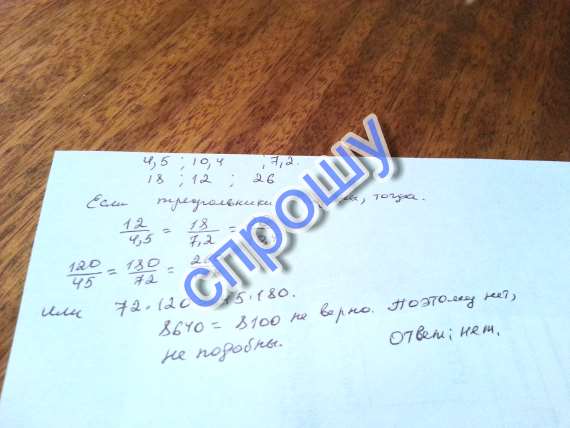 4,5 ; 10,4 ; 7,2.
18 ; 12 ; 26
Если треугольники тогда.
12/4,5 = 18/7,2 =
120/45 = 180/72 =
или 72·120 ·180.
8640 = 8100 не верно. Поэтому нет,
не подобны. Ответ: нет.
спрошу